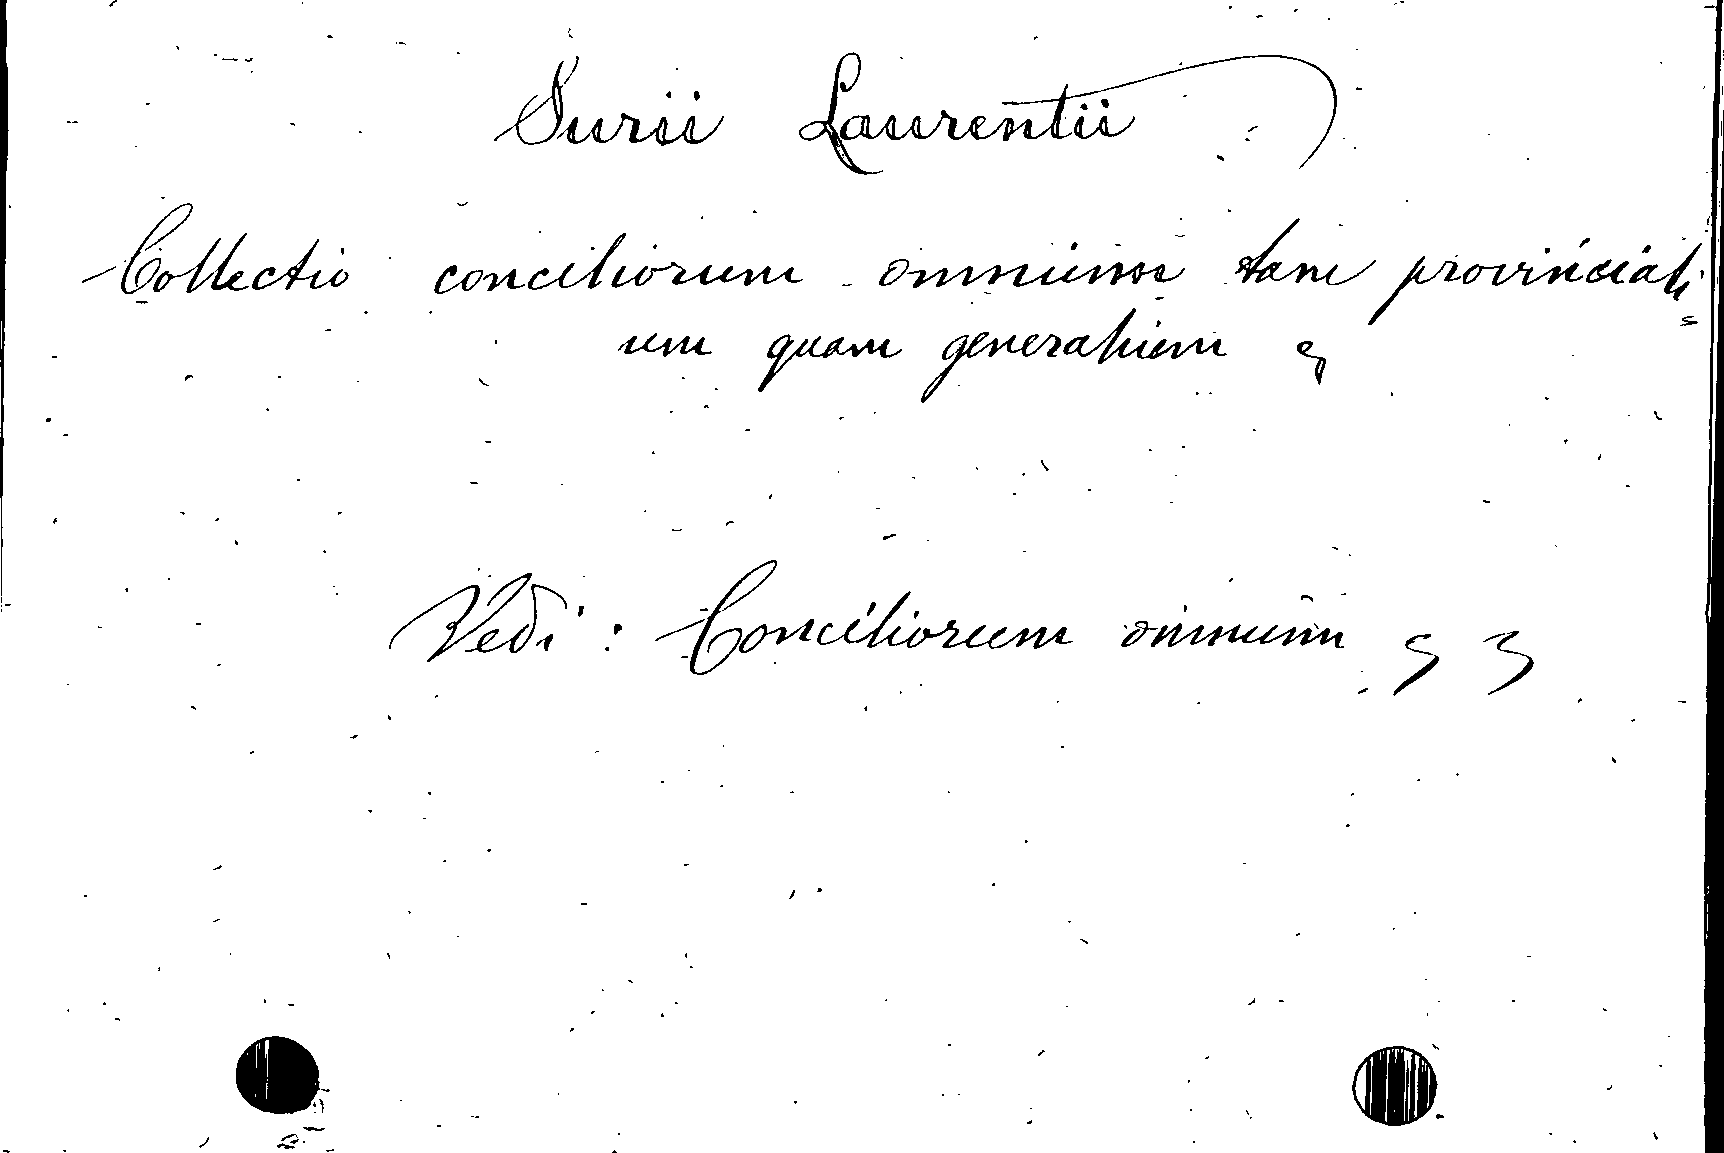 Surii Laurentii
Collectio conciliorum omnium tam provinciali=
um quam generalium
Vedi: Conciliorum omnium